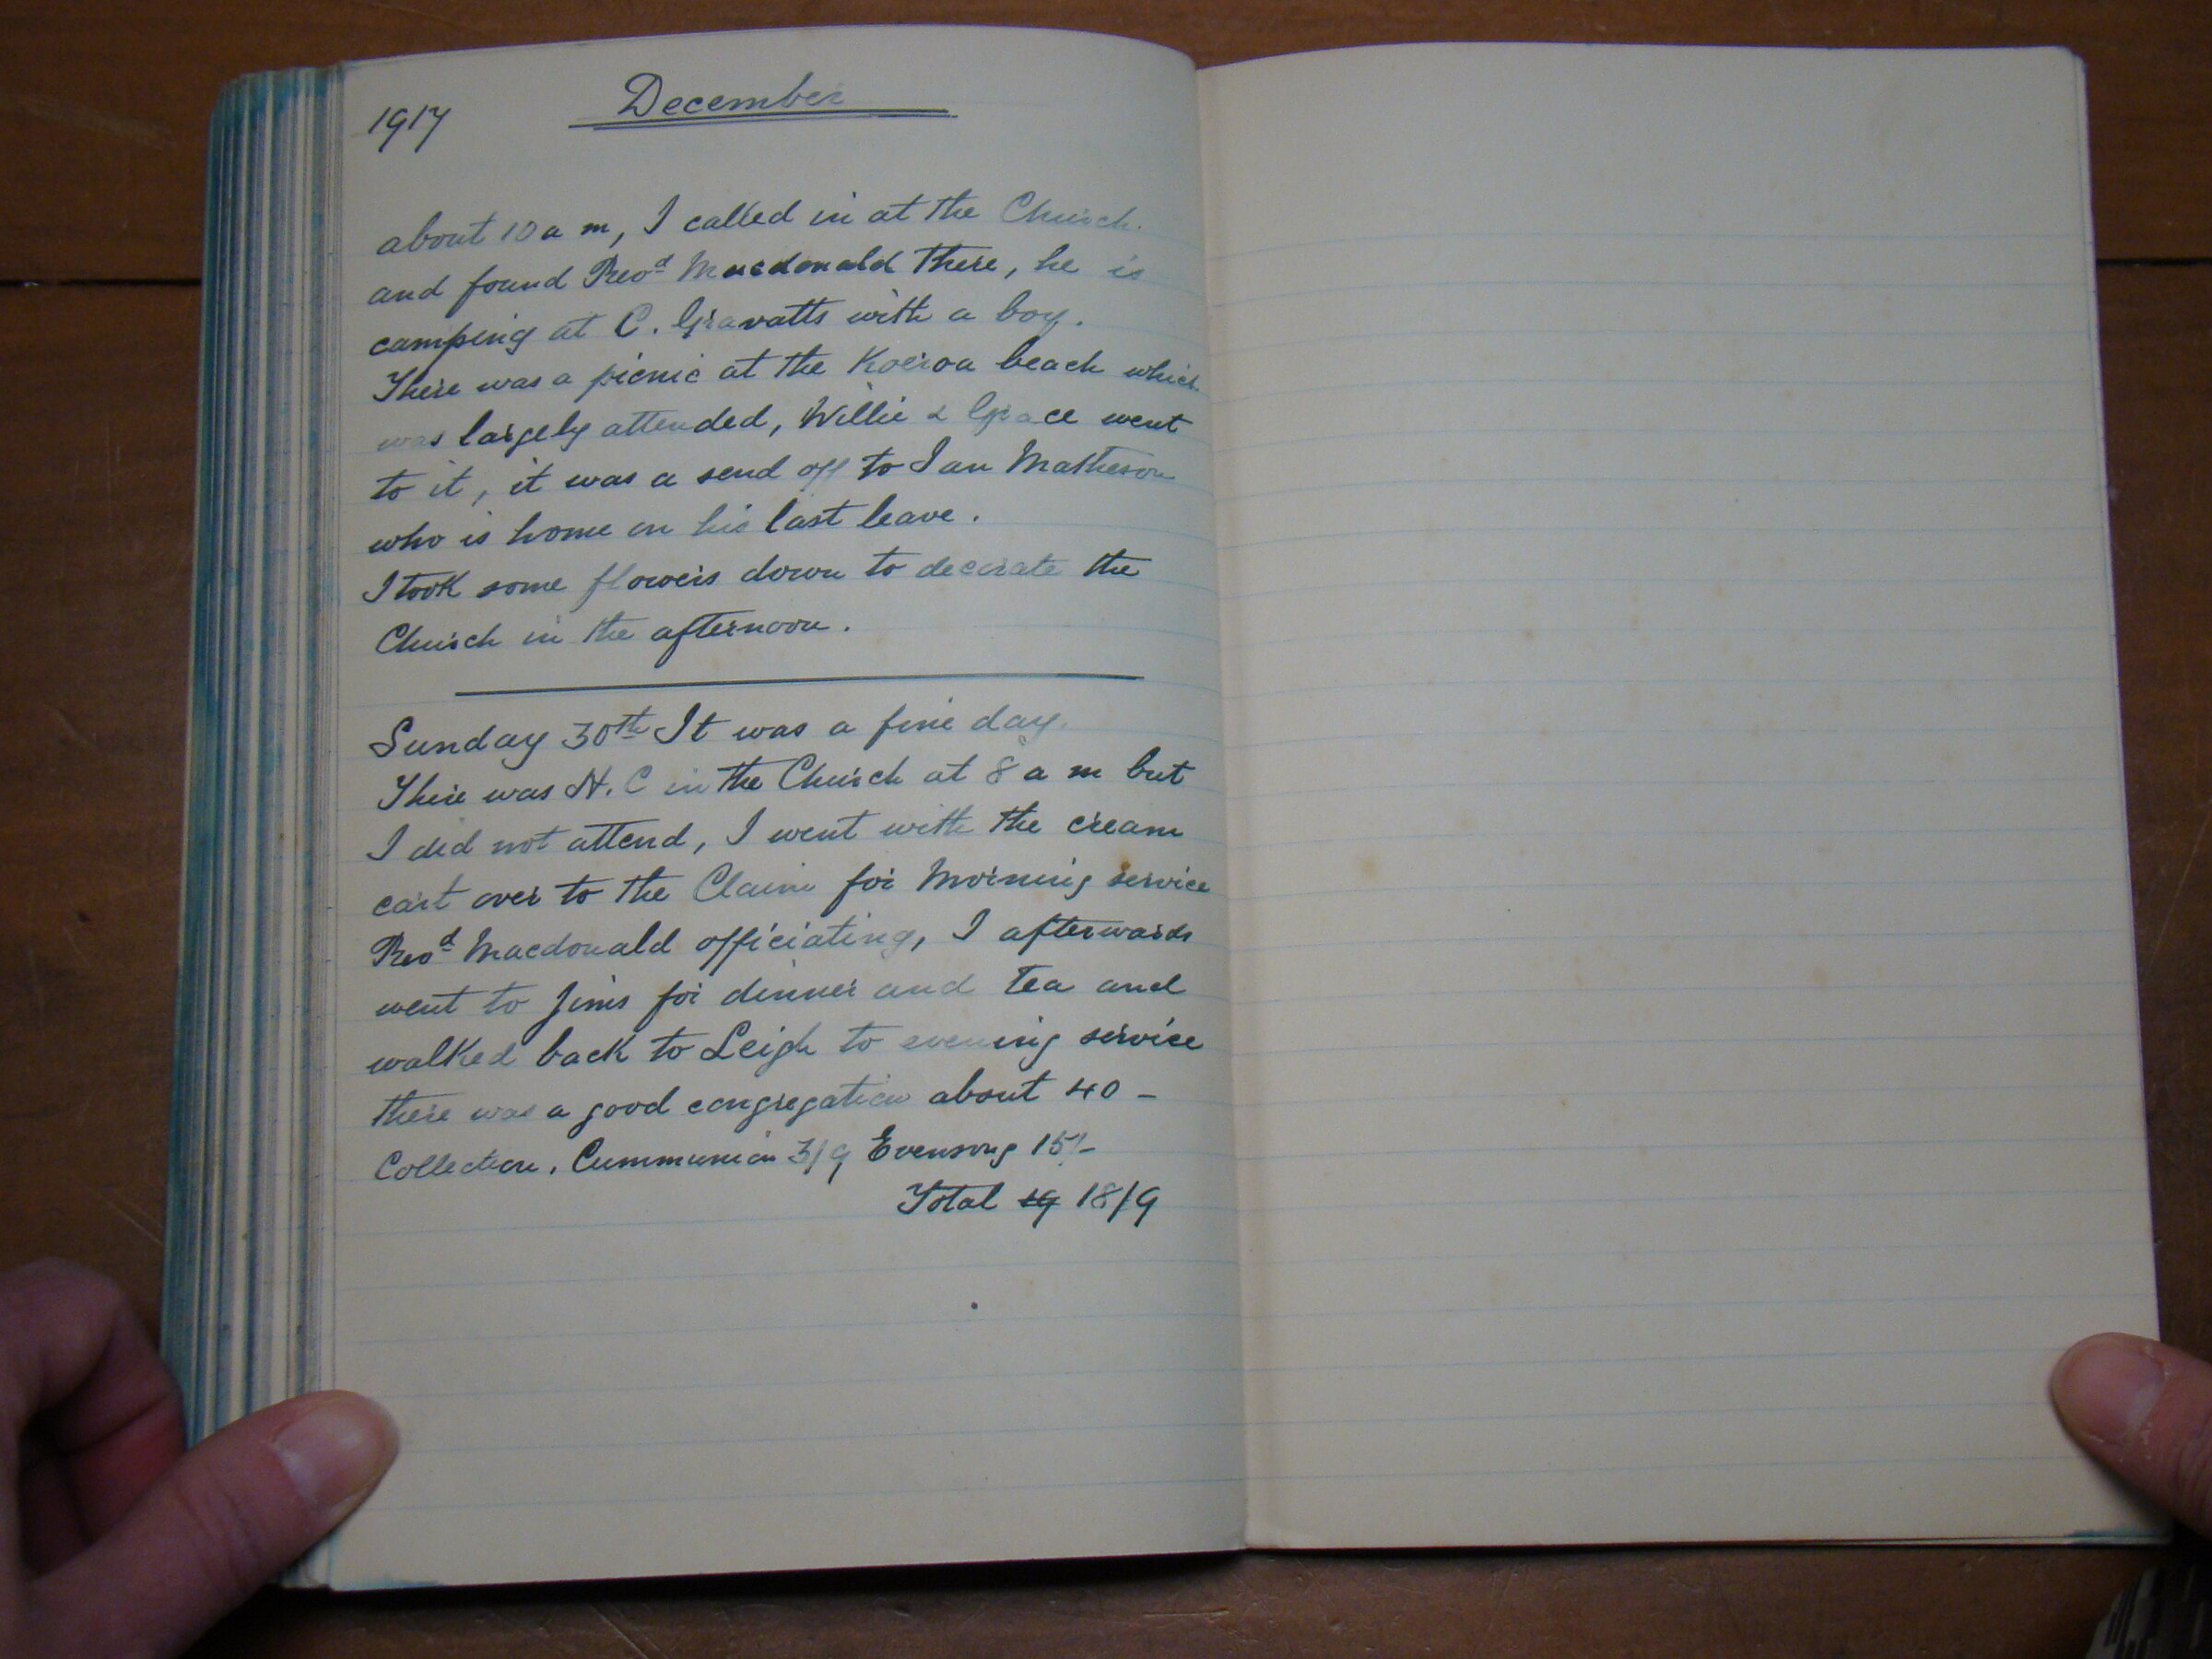 1917
December
about 10 a m, I called in at the Church.
and found Revd Macdonald there, he is
camping at C. Gravatts with a boy.
There was a picnic at the Koeroa beach which
was largely attended, Willie & Grace went
to it, it was a send off to Ian Matheson
who is home on his last leave.
I took some flowers down to decorate the
Church in the afternoon.
Sunday 30th It was a fine day.
There was H. C in the Church at 8 a m but
I did not attend, I went with the cream
cart over to the Claim for Morning service
Revd Macdonald officiating, I afterwards
went to Jims for dinner and Tea and
walked back to Leigh to evening service
there was a good congregation about 40 –
Collection. Cummunion 3/9 Evensong 15/-
Total 19 18/9